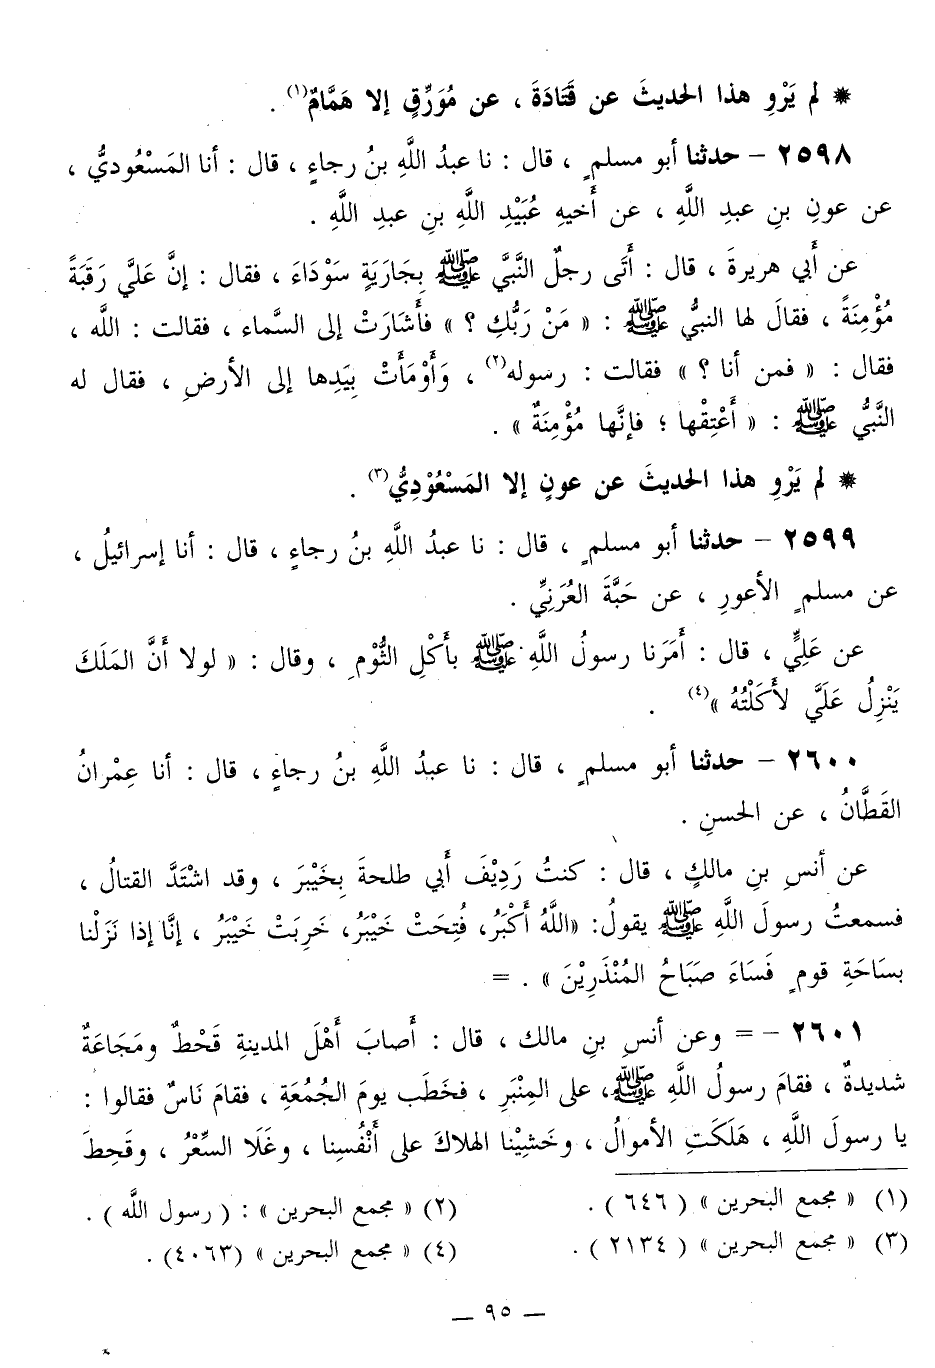 * لم يَرْوِ هذا الحديثَ عن قَتَادَةَ ، عن مُوَرِّقٍ إلا هَمَّامٌ(١) .
٢٥٩٨ – حدثنا أبو مسلمٍ ، قال : نا عبدُ اللَّهِ بنُ رجاءٍ ، قال : أنا المَسْعُوديُّ ،
عن عونِ بنِ عبدِ اللَّهِ ، عن أَخيهِ عُبَيْدِ اللَّهِ بنِ عبدِ اللَّهِ .
عن أَبي هريرةَ ، قال : أَتَى رجلٌ النَّبيَّ ﷺ بِجَارَيَةٍ سَوْدَاءَ ، فقال : إنَّ عَلَيَّ رَقَبَةً
مُؤْمِنَةً ، فقالَ لها النبيُّ ﷺ : « مَنْ رَبُّكِ ؟ » فأَشارَتْ إلى السَّماء ، فقالت : اللَّه ،
فقال : « فمن أنا ؟ » فقالت : رسوله(٢) ، وَأَوْمَأَتْ بِيَدِها إلى الأرضِ ، فقال له
النَّبيُّ ﷺ : « أَعْتِقْها ؛ فإنَّها مُؤْمِنَةٌ » .
* لم يَرْوِ هذا الحديثَ عن عونٍ إلا المَسْعُوْدِيُّ(٣) .
٢٥٩٩ – حدثنا أبو مسلمٍ ، قال : نا عبدُ اللَّهِ بنُ رجاءٍ ، قال : أنا إسرائيلُ ،
عن مسلمٍ الأعورِ ، عن حَبَّةَ العُرَنِيِّ .
عن عَلِيٍّ ، قال : أَمَرَنا رسولُ اللَّهِ ﷺ بأَكْلِ الثُّوْمِ ، وقال : « لولا أَنَّ المَلَكَ
يَنْزِلُ عَلَيَّ لأَكَلْتُهُ »(٤) .
٢٦٠٠ – حدثنا أبو مسلمٍ ، قال : نا عبدُ اللَّهِ بنُ رجاءٍ ، قال : أنا عِمْرانُ
القَطَّانُ ، عن الحسنِ .
عن أنسِ بنِ مالكٍ ، قال : كنتُ رَدِيْفَ أَبي طلحةَ بِخَيْبَرَ ، وقد اشْتَدَّ القتالُ ،
فسمعتُ رسولَ اللَّهِ ﷺ يقولُ: «اللَّهُ أَكْبَرُ، فُتِحَتْ خَيْبَرُ، خَرِبَتْ خَيْبَرُ ، إنَّا إذا نَزَلْنا
بسَاحَةِ قومٍ فَسَاءَ صَبَاحُ المُنْذَرِيْنَ » . =
٢٦٠١ – = وعن أنسِ بنِ مالك ، قال : أَصابَ أَهْلَ المدينةِ قَحْطٌ ومَجَاعَةٌ
شديدةٌ ، فقامَ رسولُ اللَّهِ ﷺ، على المِنْبَرِ ، فخَطَب يومَ الجُمُعَةِ ، فقامَ نَاسٌ فقالوا :
يا رسولَ اللَّهِ ، هَلَكَتِ الأموالُ ، وخَشِيْنا الهلاكَ على أَنْفُسِنا ، وغَلَا السِّعْرُ ، وقَحِطَ
(١) « مجمع البحرين » ( ٦٤٦ ) . (٢) « مجمع البحرين » : ( رسول اللَّه ) .
(٣) « مجمع البحرين » ( ٢١٣٤ ) . (٤) « مجمع البحرين » (٤٠٦٣) .
— ٩٥ —